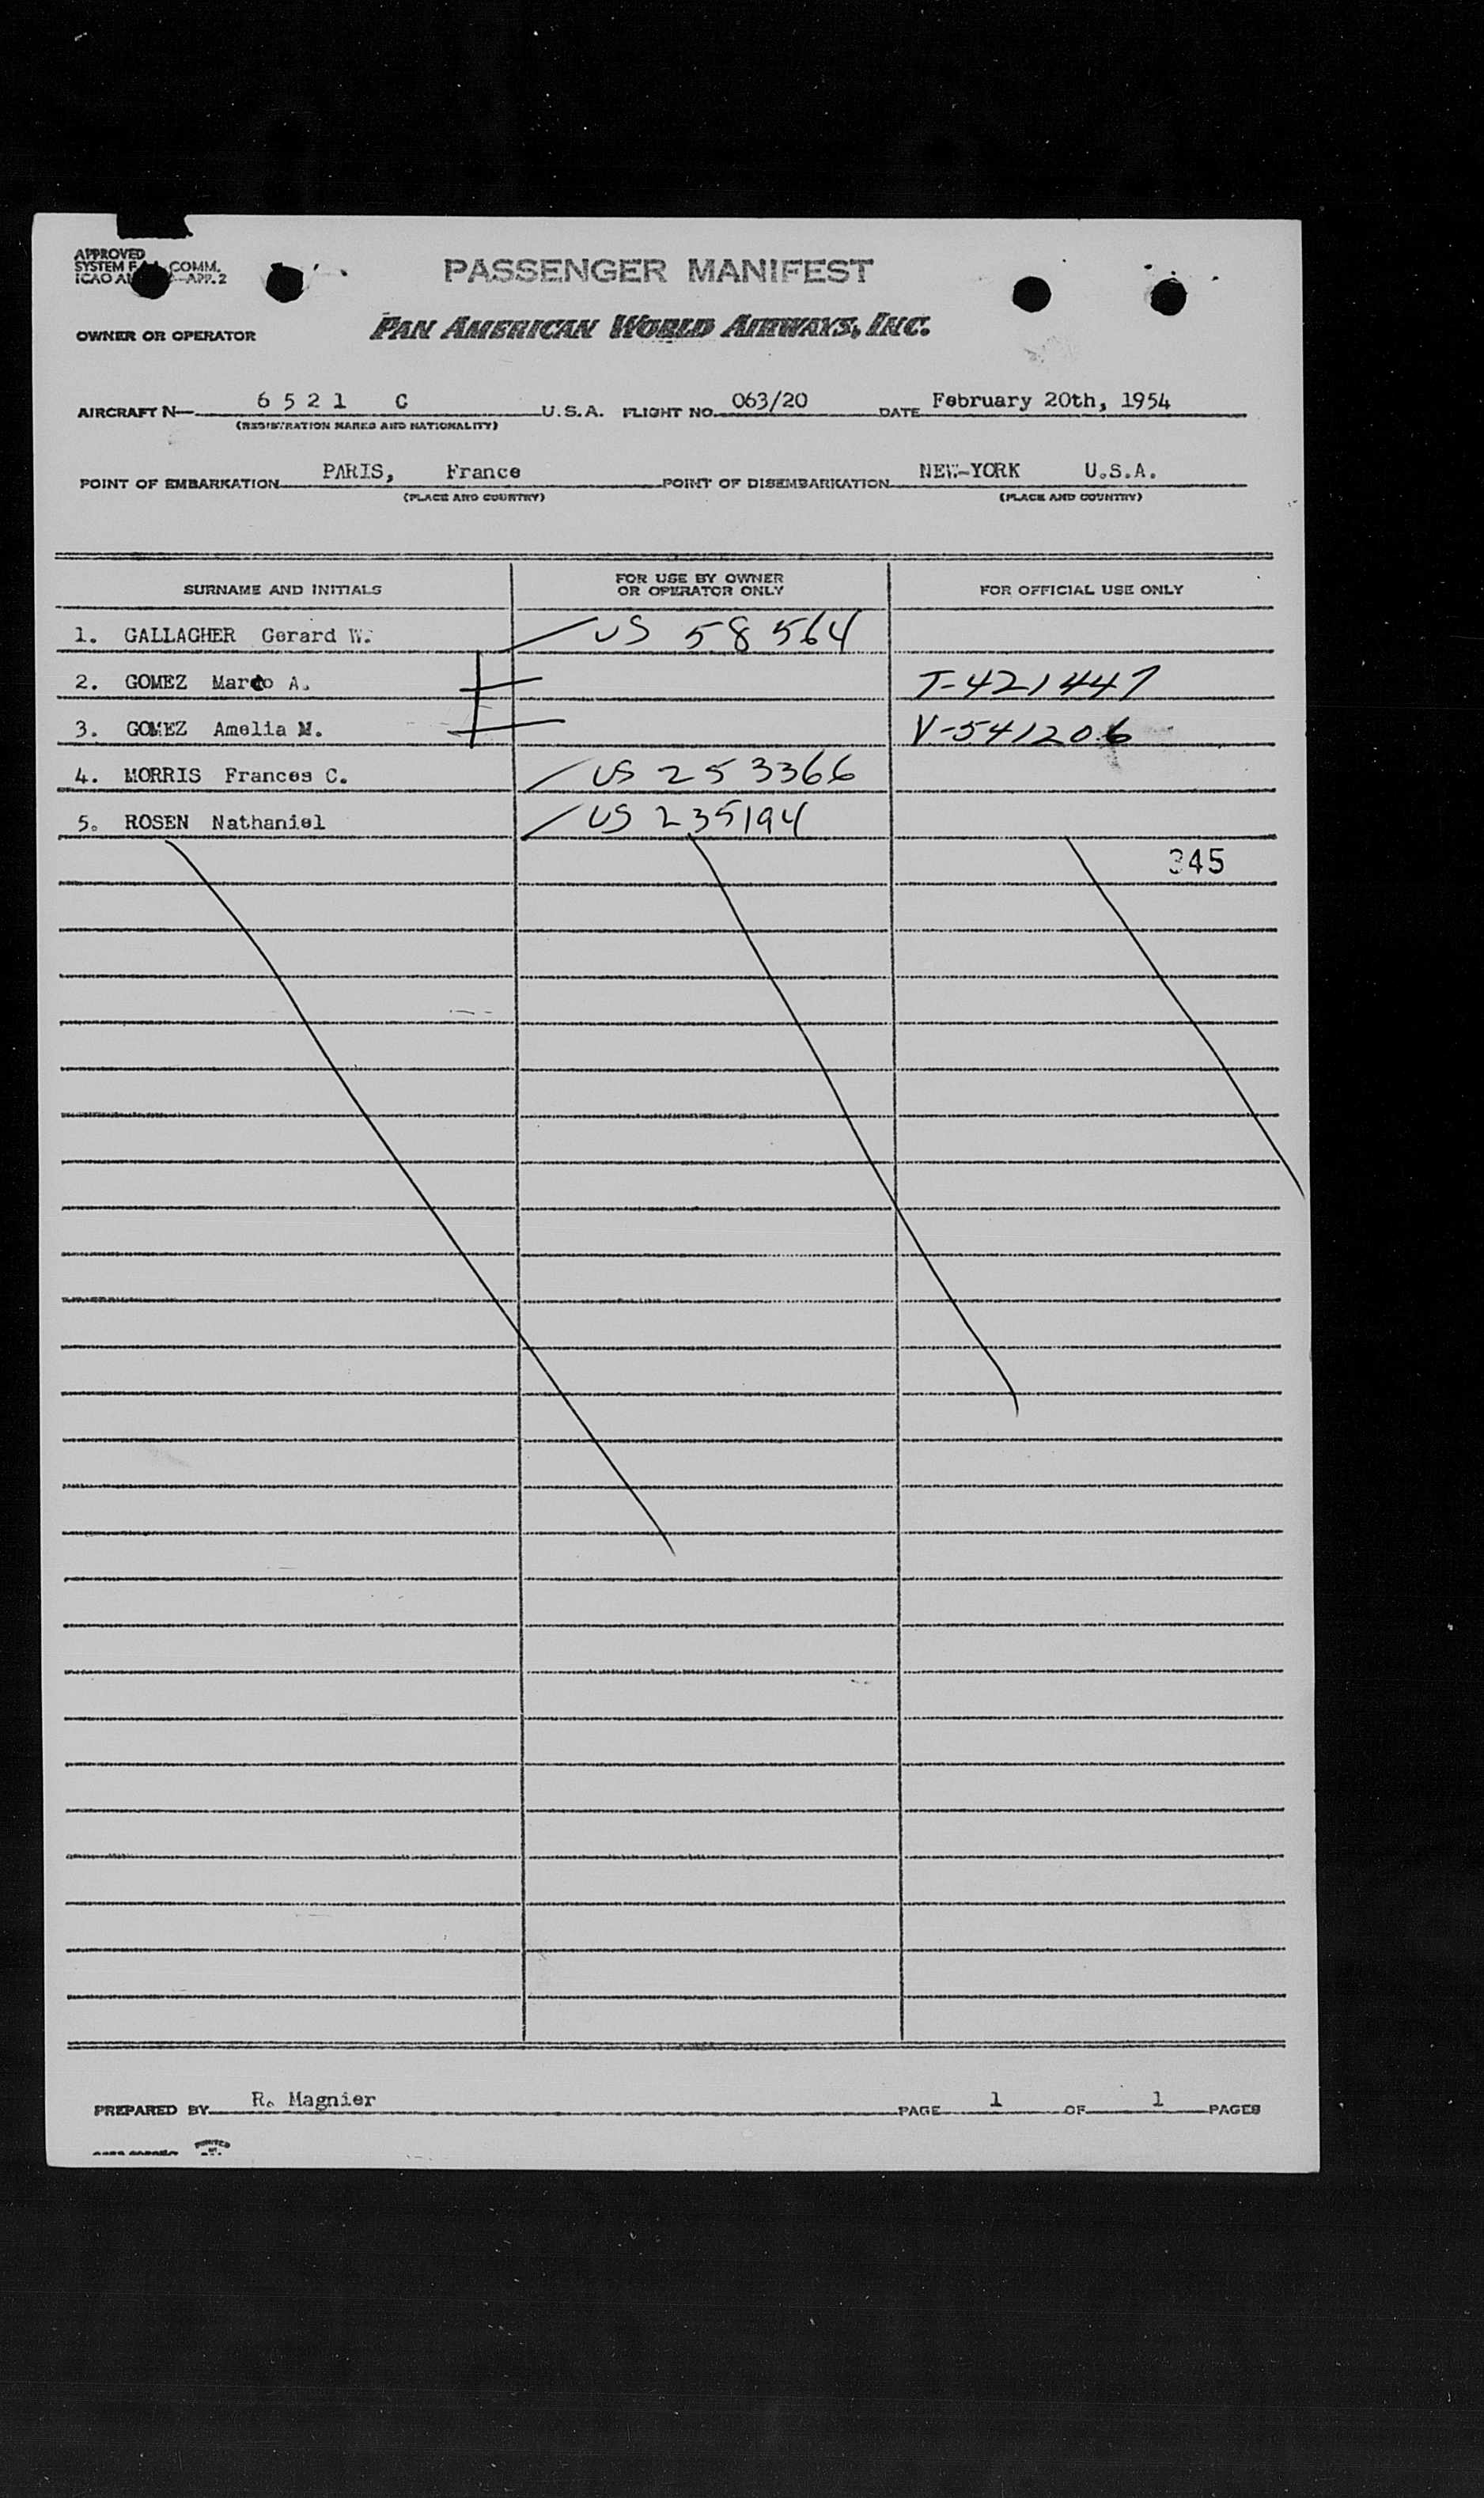 APPROVED
SYSTEM F COMM.
ICAO APP. 2
PASSENGER MANIFEST
OWNER OR OPERATOR PAN AMERICAN WORLD AIRWAYS, INC.
AIRCRAFT N— 6 5 2 1 C U.S.A. FLIGHT NO. 063/20 DATE February 20th, 1954
(REGISTRATION MARKS AND NATIONALITY)
POINT OF EMBARKATION PARIS, France POINT OF DISEMBARKATION NEW-YORK U.S.A.
(PLACE AND COUNTRY) (PLACE AND COUNTRY)
SURNAME AND INITIALS FOR USE BY OWNER OR OPERATOR ONLY FOR OFFICIAL USE ONLY
1. GALLAGHER Gerard W. US 58564
2. GOMEZ Marco A. T-421447
3. GOMEZ Amelia M. V-541206
4. MORRIS Frances C. US 253366
5. ROSEN Nathaniel US 235194
345
PREPARED BY R. Magnier PAGE 1 OF 1 PAGES
PRINTED